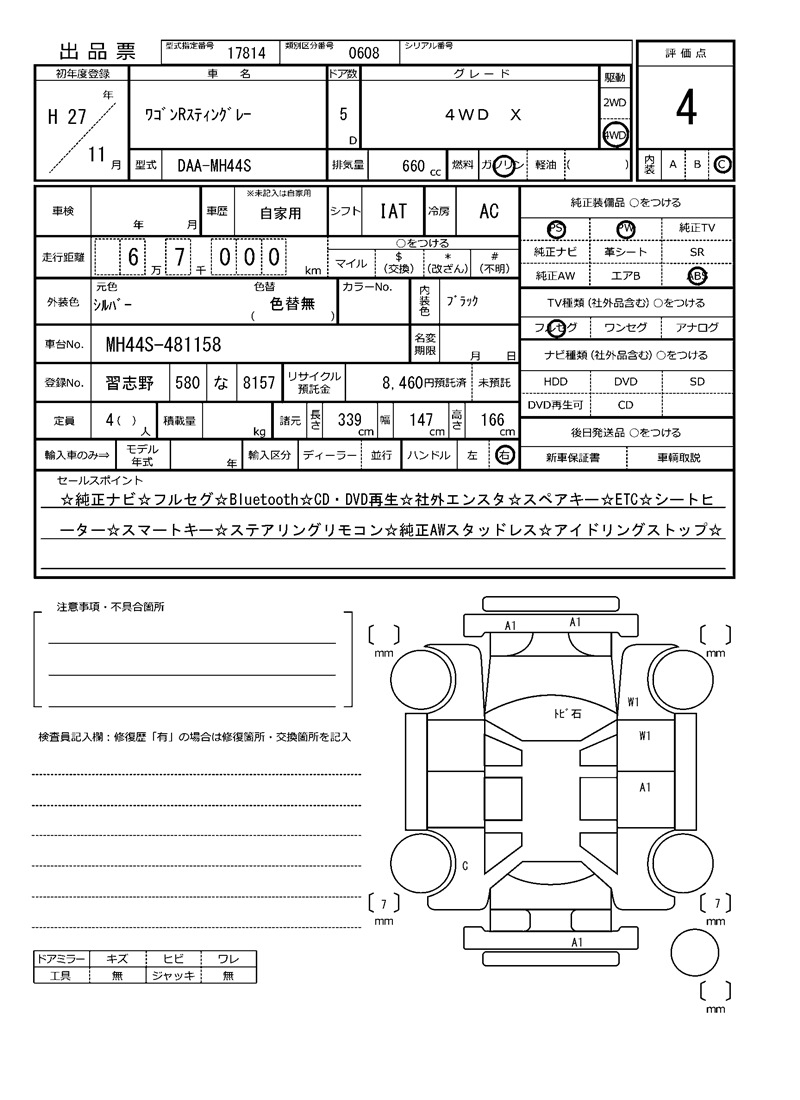 出品票 型式指定番号 17814 類別区分番号 0608 シリアル番号
評価点
4
内装 A B C
初年度登録 車名 ドア数 グレード 駆動
H 27 年 11 月
ワゴンRスティングレー
5 D
4WD X
2WD
4WD
型式 DAA-MH44S 排気量 660 cc 燃料 ガソリン 軽油 ( )
車検 年 月 車歴 ※未記入は自家用 自家用 シフト IAT 冷房 AC
走行距離 6 万 7 千 0 0 0 km
○をつける
マイル $(交換) *(改ざん) #(不明)
外装色 元色 シルバー 色替 ( 色替無 ) カラーNo. 内装色 ブラック
車台No. MH44S-481158 名変期限 月 日
登録No. 習志野 580 な 8157 リサイクル預託金 8,460円預託済 未預託
定員 4( )人 積載量 kg 諸元 長さ 339cm 幅 147cm 高さ 166cm
輸入車のみ⇒ モデル年式 年 輸入区分 ディーラー 並行 ハンドル 左 右
純正装備品 ○をつける
PS PW 純正TV
純正ナビ 革シート SR
純正AW エアB ABS
TV種類(社外品含む)○をつける
フルセグ ワンセグ アナログ
ナビ種類(社外品含む)○をつける
HDD DVD SD
DVD再生可 CD
後日発送品 ○をつける
新車保証書 車輌取説
セールスポイント
☆純正ナビ☆フルセグ☆Bluetooth☆CD・DVD再生☆社外エンスタ☆スペアキー☆ETC☆シートヒ
ーター☆スマートキー☆ステアリングリモコン☆純正AWスタッドレス☆アイドリングストップ☆
注意事項・不具合箇所
検査員記入欄：修復歴「有」の場合は修復箇所・交換箇所を記入
ドアミラー キズ ヒビ ワレ
工具 無 ジャッキ 無
A1 A1
mm mm
W1
トビ石
W1
A1
C
7 mm
7 mm
A1
mm